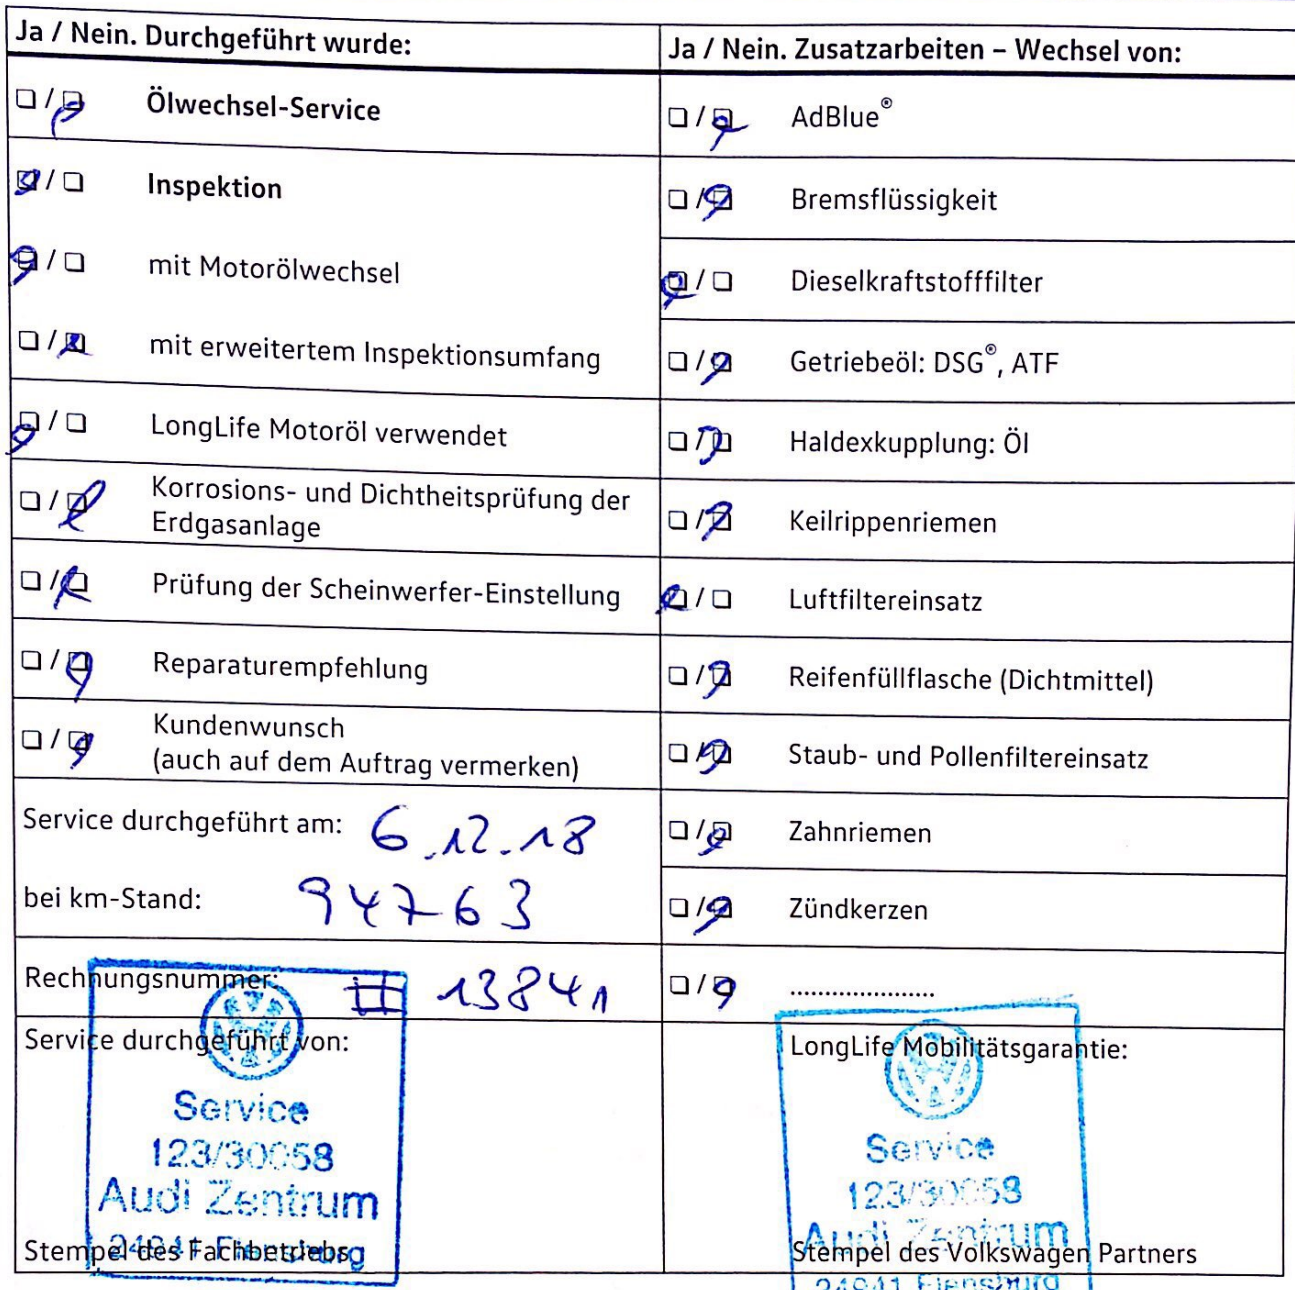 Ja / Nein. Durchgeführt wurde:
□ / □ Ölwechsel-Service
□ / □ Inspektion
□ / □ mit Motorölwechsel
□ / □ mit erweitertem Inspektionsumfang
□ / □ LongLife Motoröl verwendet
□ / □ Korrosions- und Dichtheitsprüfung der
Erdgasanlage
□ / □ Prüfung der Scheinwerfer-Einstellung
□ / □ Reparaturempfehlung
□ / □ Kundenwunsch
(auch auf dem Auftrag vermerken)
Service durchgeführt am: 6.12.18
bei km-Stand: 94763
Rechnungsnummer: # 13841
Service durchgeführt von:
Service
123/30058
Audi Zentrum
24941 Flensburg
Stempel des Fachbetriebs
Ja / Nein. Zusatzarbeiten – Wechsel von:
□ / □ AdBlue®
□ / □ Bremsflüssigkeit
□ / □ Dieselkraftstofffilter
□ / □ Getriebeöl: DSG®, ATF
□ / □ Haldexkupplung: Öl
□ / □ Keilrippenriemen
□ / □ Luftfiltereinsatz
□ / □ Reifenfüllflasche (Dichtmittel)
□ / □ Staub- und Pollenfiltereinsatz
□ / □ Zahnriemen
□ / □ Zündkerzen
□ / □ .....................
LongLife Mobilitätsgarantie:
Service
123/30058
Audi Zentrum
Stempel des Volkswagen Partners
24941 Flensburg